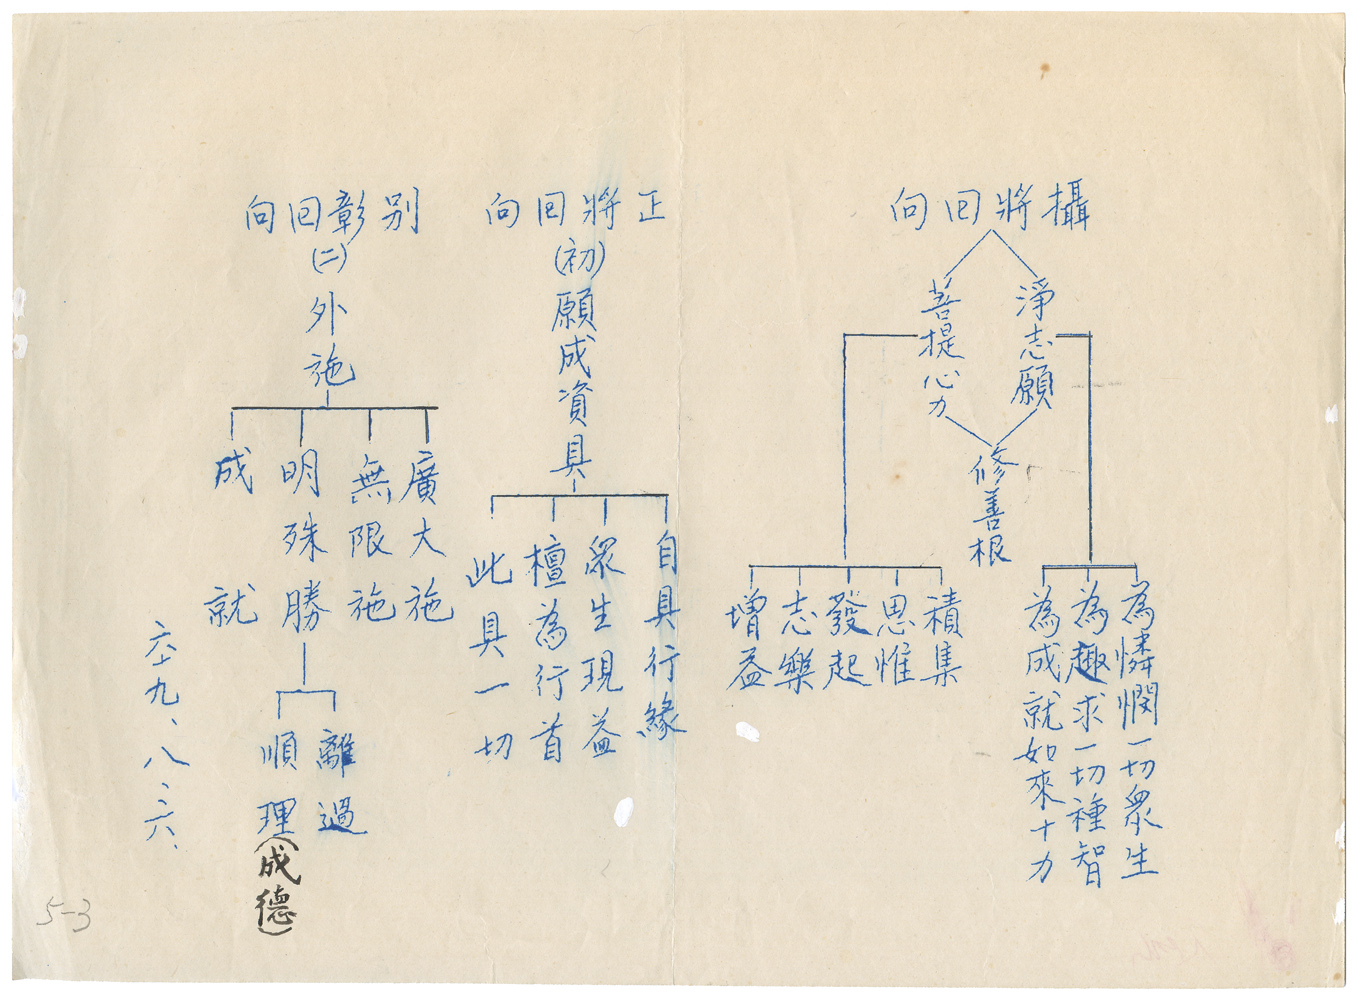 攝將回向
淨志願
菩提心力
修善根
為憐憫一切眾生
為趣求一切種智
為成就如來十力
積集
思惟
發起
志樂
增益
正將回向
(初)願成資具
自具行緣
眾生現益
檀為行首
此具一切
别彰回向
(二)外施
廣大施
無限施
明殊勝
成就
離過
順理(成德)
六十九、八、二六、
5-3